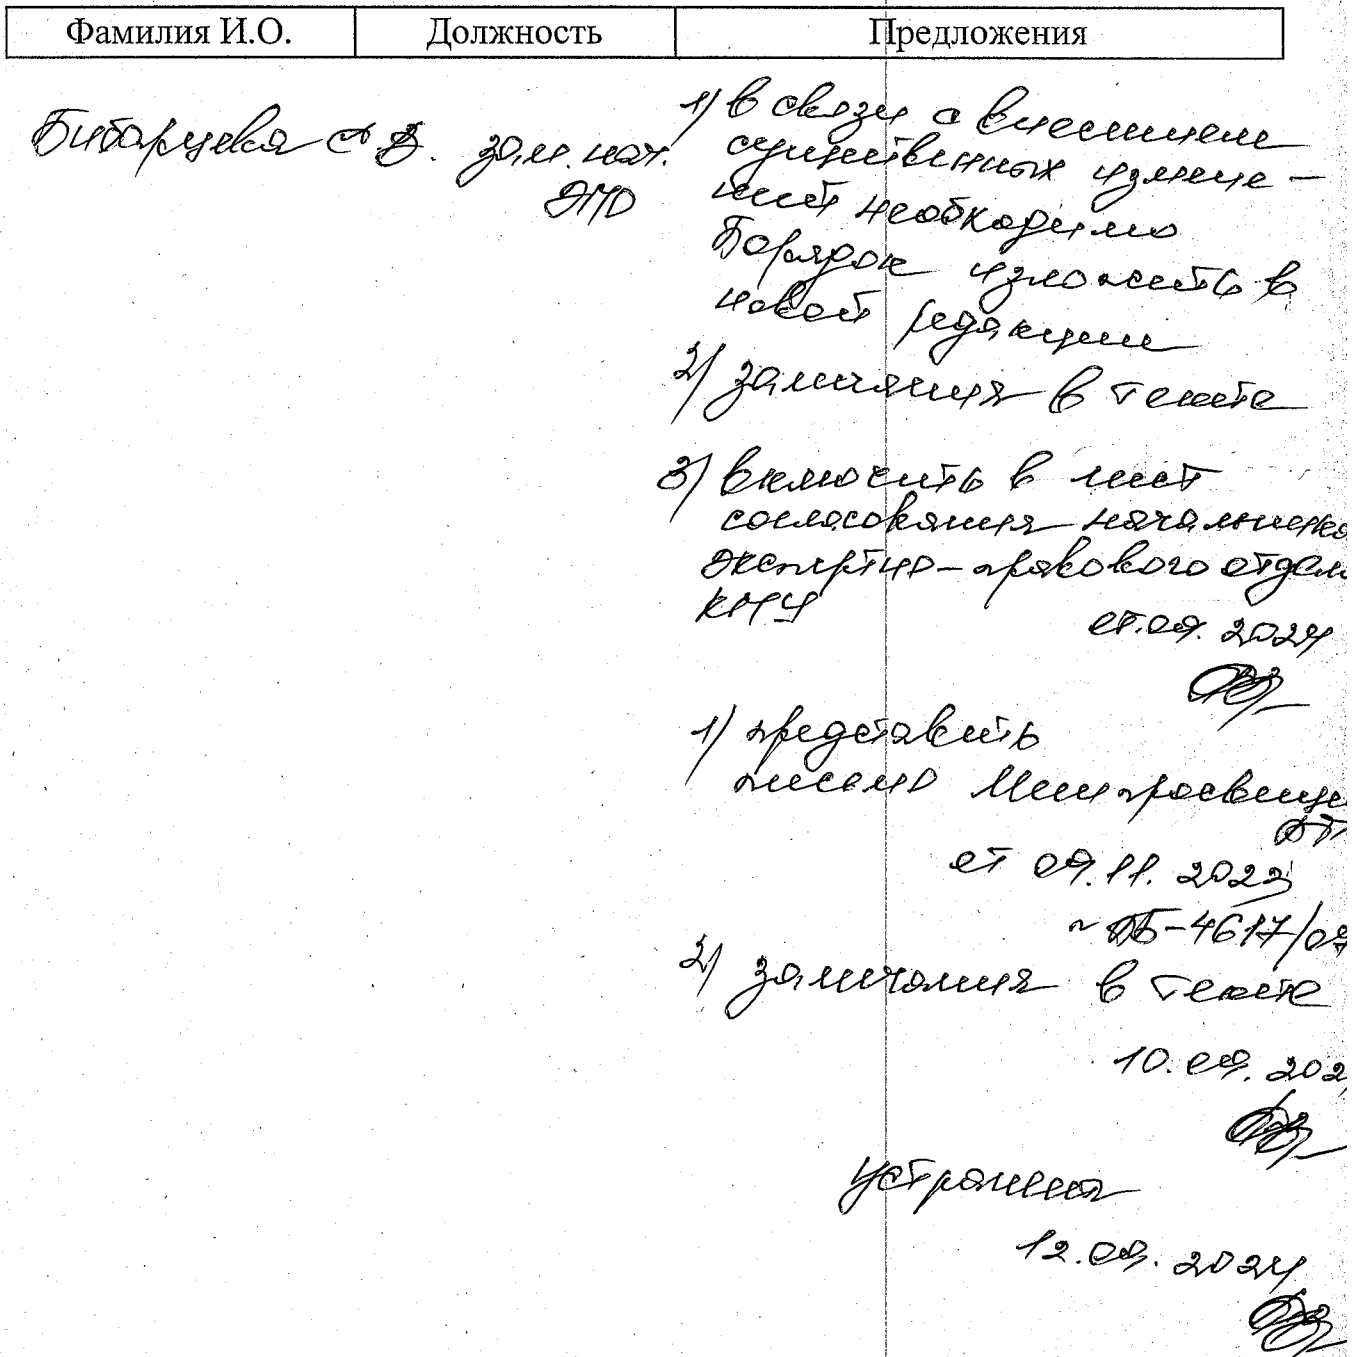 Фамилия И.О. Должность Предложения
1) в связи с внесением
Бибарцева А.В. зам. нач. существенных измене-
ЭПО ний необходимо
Порядок изложить в
новой редакции
2) замечания в тексте
3) включить в лист
согласования начальника
экспертно-правового отдела
КПУ
09. 2024
1) представить
письмо Минпросвеще
от 09.11. 2023
-4617/07
2) замечания в тексте
10.09. 202
устранены
12.09. 2024